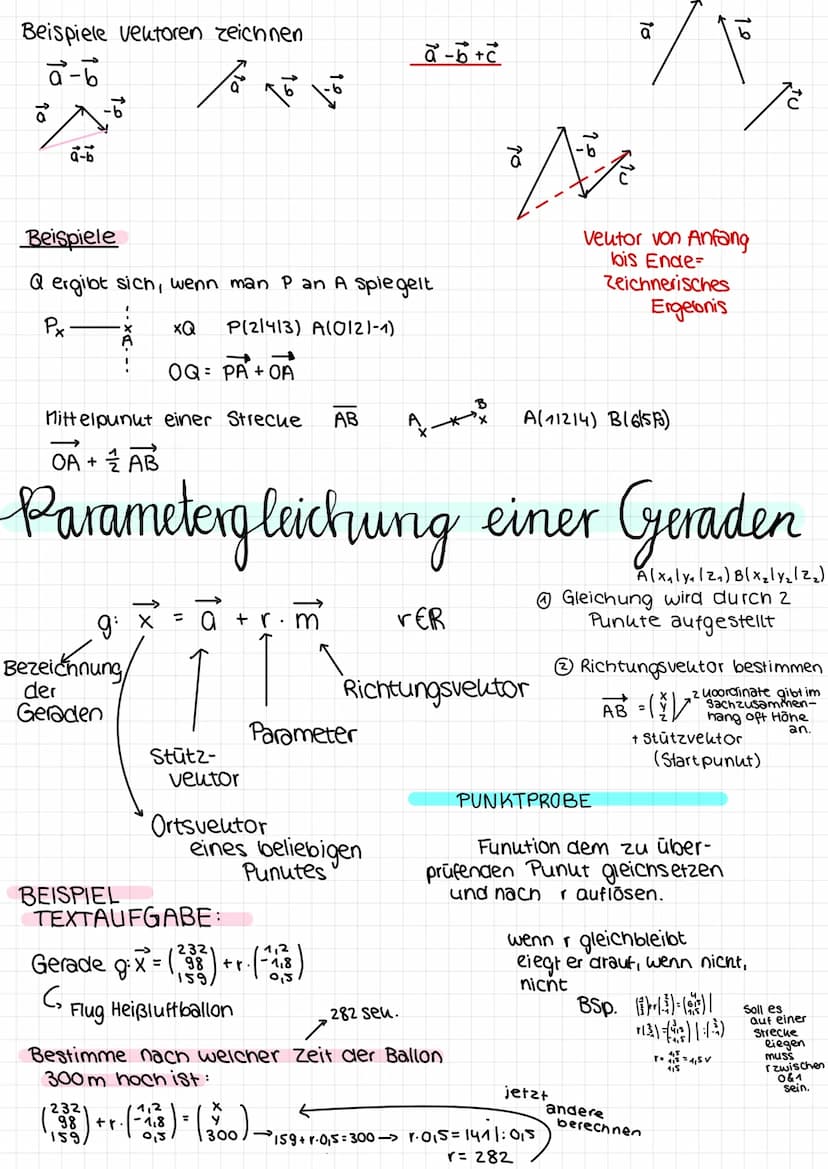 Beispiele Vektoren zeichnen
a⃗ - b⃗
a⃗ -b⃗
a⃗-b⃗
a⃗ b⃗ -b⃗
a⃗ - b⃗ + c⃗
a⃗ b⃗
c⃗
a⃗ -b⃗ c⃗
Vektor von Anfang
bis Ende=
zeichnerisches
Ergebnis
Beispiele
Q ergibt sich, wenn man P an A spiegelt
Px A xQ P(2|4|3) A(0|2|-1)
OQ = PA⃗ + OA⃗
Mittelpunkt einer Strecke AB A x B x A(1|2|4)
OA⃗ + 1/2 AB⃗
Parametergleichung einer Geraden
A(x₁|y₁|z₁) B(x₂|y₂|z₂)
g: x⃗ = a⃗ + r · m⃗ r∈R
Bezeichnung
der
Geraden
Stütz-
vektor
Parameter
Richtungsvektor
Ortsvektor
eines beliebigen
Punktes
① Gleichung wird durch 2
Punkte aufgestellt
② Richtungsvektor bestimmen
AB⃗ = (x y z)
z Koordinate gibt im
Sachzusammen-
hang oft Höhe
an.
+ Stützvektor
(Startpunkt)
PUNKTPROBE
Funktion dem zu über-
prüfenden Punkt gleichsetzen
und nach r auflösen.
wenn r gleichbleibt
liegt er drauf, wenn nicht,
nicht
BSP.
Soll es
auf einer
Strecke
liegen
muss
r zwischen
0&1
sein.
BEISPIEL
TEXTAUFGABE:
Gerade g: x⃗ = (232 98 159) + r · (1,2 -1,8 0,5)
Flug Heißluftballon
282 sek.
Bestimme nach welcher Zeit der Ballon
300m hoch ist:
(232 98 159) + r · (1,2 -1,8 0,5) = (x y 300) → 159 + r · 0,5 = 300 → r · 0,5 = 141 | : 0,5
r = 282
jetzt
andere
berechnen